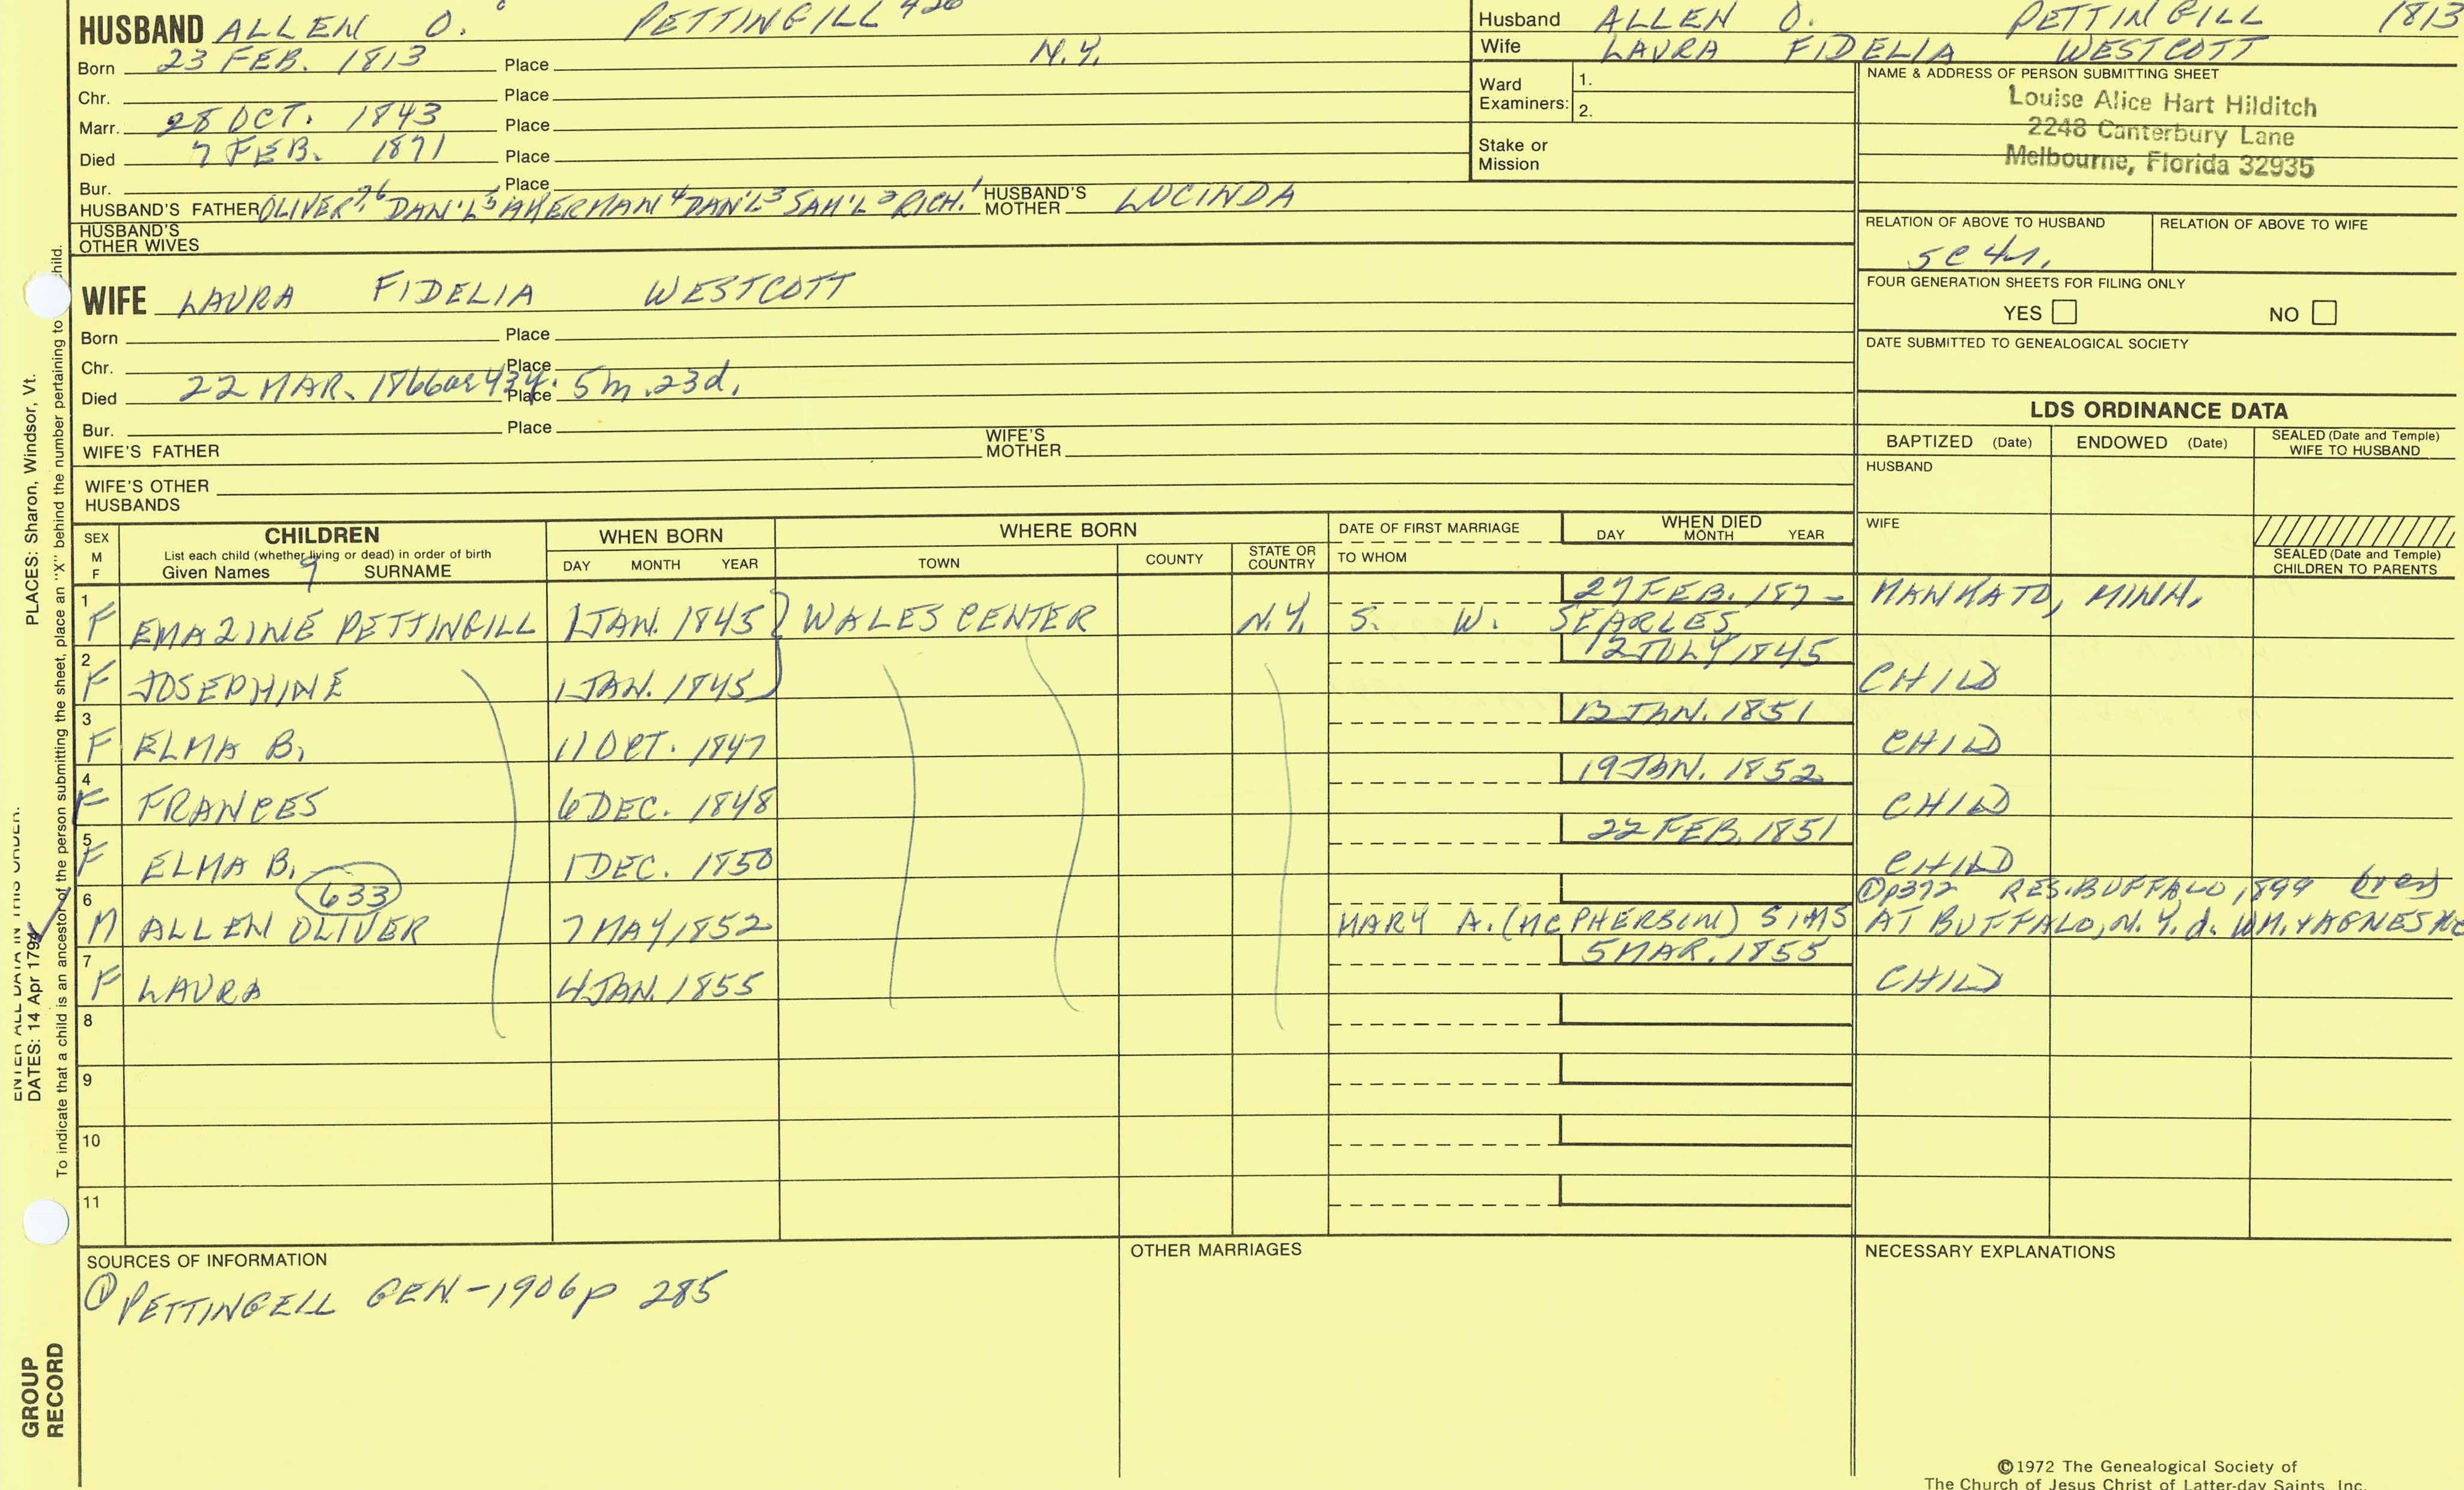 HUSBAND ALLEN O. PETTINGILL 426
Born 23 FEB. 1813 Place N.Y.
Chr. Place
Marr. 28 OCT. 1843 Place
Died 7 FEB. 1871 Place
Bur. Place
HUSBAND'S FATHER OLIVER, DAN'L AKERMAN 4 DAN'L 3 SAM'L 2 RICH. 1 HUSBAND'S MOTHER LUCINDA
HUSBAND'S OTHER WIVES
WIFE LAURA FIDELIA WESTCOTT
Born Place
Chr. Place
Died 22 MAR. 1866 ae 43y. Place 5m. 23d.
Bur. Place
WIFE'S FATHER WIFE'S MOTHER
WIFE'S OTHER HUSBANDS
Husband ALLEN O. PETTINGILL 1813
Wife LAURA FIDELIA WESTCOTT
Ward Examiners: 1.
2.
Stake or Mission
NAME & ADDRESS OF PERSON SUBMITTING SHEET
Louise Alice Hart Hilditch
2248 Canterbury Lane
Melbourne, Florida 32935
RELATION OF ABOVE TO HUSBAND RELATION OF ABOVE TO WIFE
5C4r.
FOUR GENERATION SHEETS FOR FILING ONLY
YES NO
DATE SUBMITTED TO GENEALOGICAL SOCIETY
LDS ORDINANCE DATA
BAPTIZED (Date) ENDOWED (Date) SEALED (Date and Temple) WIFE TO HUSBAND
HUSBAND
WIFE
SEALED (Date and Temple) CHILDREN TO PARENTS
SEX M F
CHILDREN
List each child (whether living or dead) in order of birth
Given Names SURNAME
WHEN BORN
DAY MONTH YEAR
WHERE BORN
TOWN COUNTY STATE OR COUNTRY
DATE OF FIRST MARRIAGE
TO WHOM
WHEN DIED
DAY MONTH YEAR
1 27 FEB. 187- MANKATO, MINN.
F EMAZINE PETTINGILL 1 JAN. 1845 WALES CENTER N.Y. S. W. SEARLES
2 12 JULY 1845
F JOSEPHINE 1 JAN. 1845 CHILD
3 13 JAN. 1851
F ELMA B. 11 OCT. 1847 CHILD
4 19 JAN. 1852
F FRANCES 6 DEC. 1848 CHILD
5 22 FEB. 1851
F ELMA B. 1 DEC. 1850 CHILD
6 633 ① p372 RES. BUFFALO, 1899
M ALLEN OLIVER 7 MAY 1852 MARY A. (MCPHERSON) SIMS AT BUFFALO, N.Y. d. WM. & AGNES MC
7 5 MAR. 1855
F LAURA 4 JAN. 1855 CHILD
8
9
10
11
SOURCES OF INFORMATION
① PETTINGELL GEN-1906 p 285
OTHER MARRIAGES
NECESSARY EXPLANATIONS
©1972 The Genealogical Society of
The Church of Jesus Christ of Latter-day Saints, Inc.
ENTER ALL DATA IN THIS ORDER:
DATES: 14 Apr 1794 PLACES: Sharon, Windsor, Vt.
To indicate that a child is an ancestor of the person submitting the sheet, place an "X" behind the number pertaining to child.
GROUP
RECORD